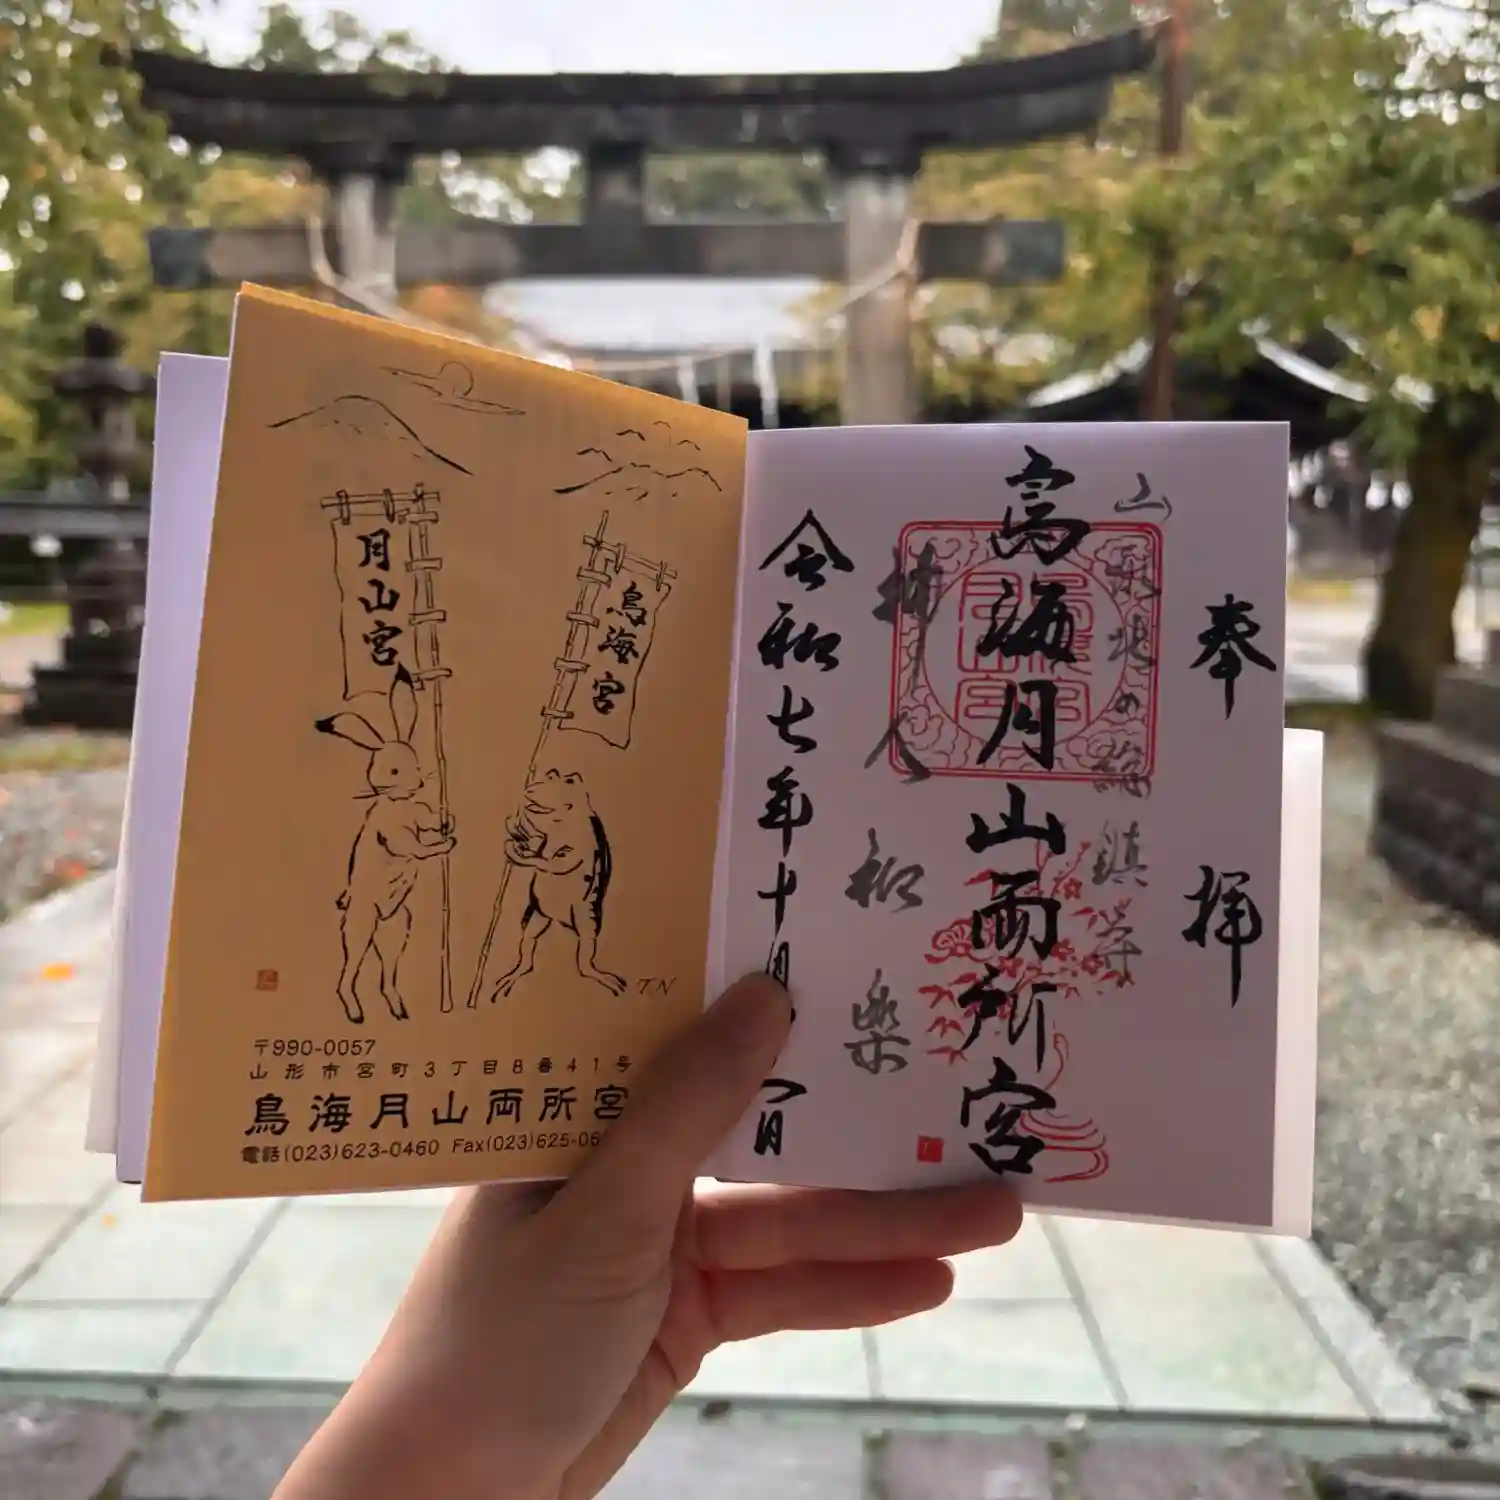 月山宮
鳥海宮
TN
〒990-0057
山形市宮町3丁目8番41号
鳥海月山両所宮
電話(023)623-0460 Fax(023)625-06
奉拝
山形北の総鎮守
鳥海月山両所宮
神人和楽
令和七年十月
日